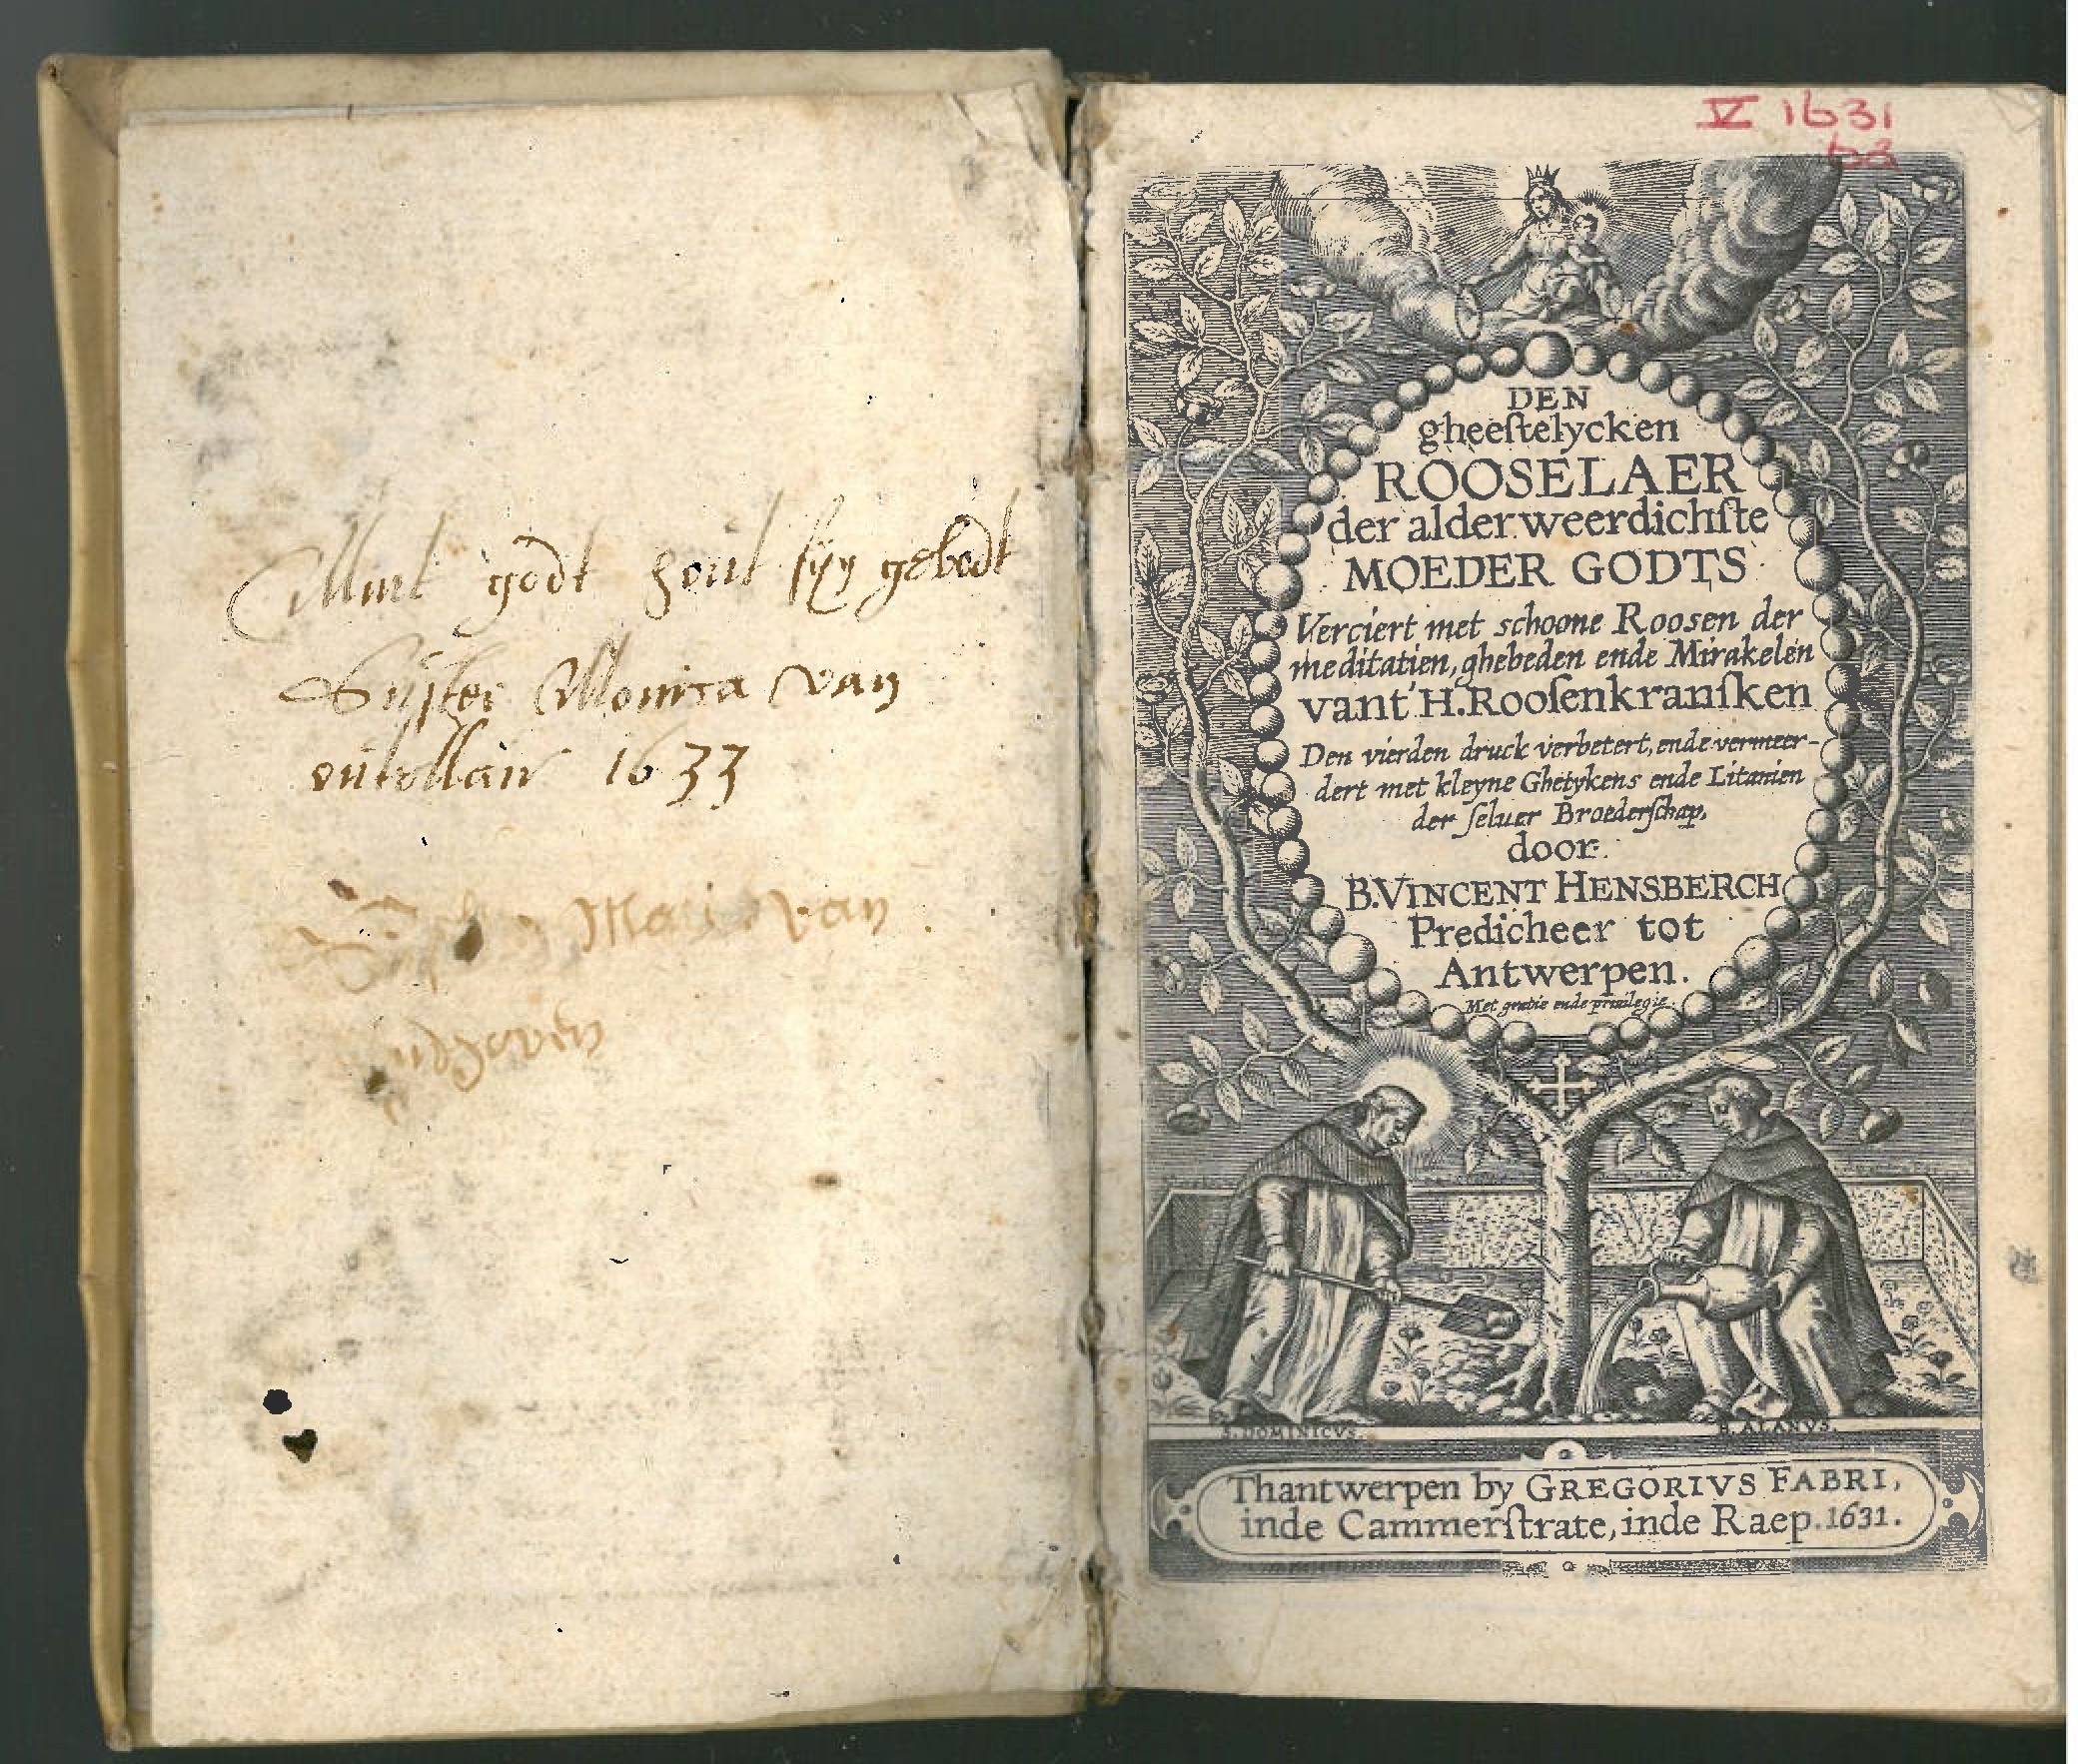 Mint godt hout syn gebodt
Suster Monica van
1633
van
V 1631
b3
DEN
gheeſtelycken
ROOSELAER
der alderweerdichſte
MOEDER GODTS
Verciert met schoone Roosen der
meditatien, ghebeden ende Mirakelen
vant' H. Rooſenkranſken
Den vierden druck verbetert, ende vermeer-
dert met kleyne Ghetykens ende Litanien
der ſeluer Broederſchap,
door.
B. VINCENT HENSBERCH
Predicheer tot
Antwerpen.
Met gratie ende priuilegie.
S. DOMINICVS.
B. ALANVS.
Thantwerpen by GREGORIVS FABRI,
inde Cammerſtrate, inde Raep. 1631.